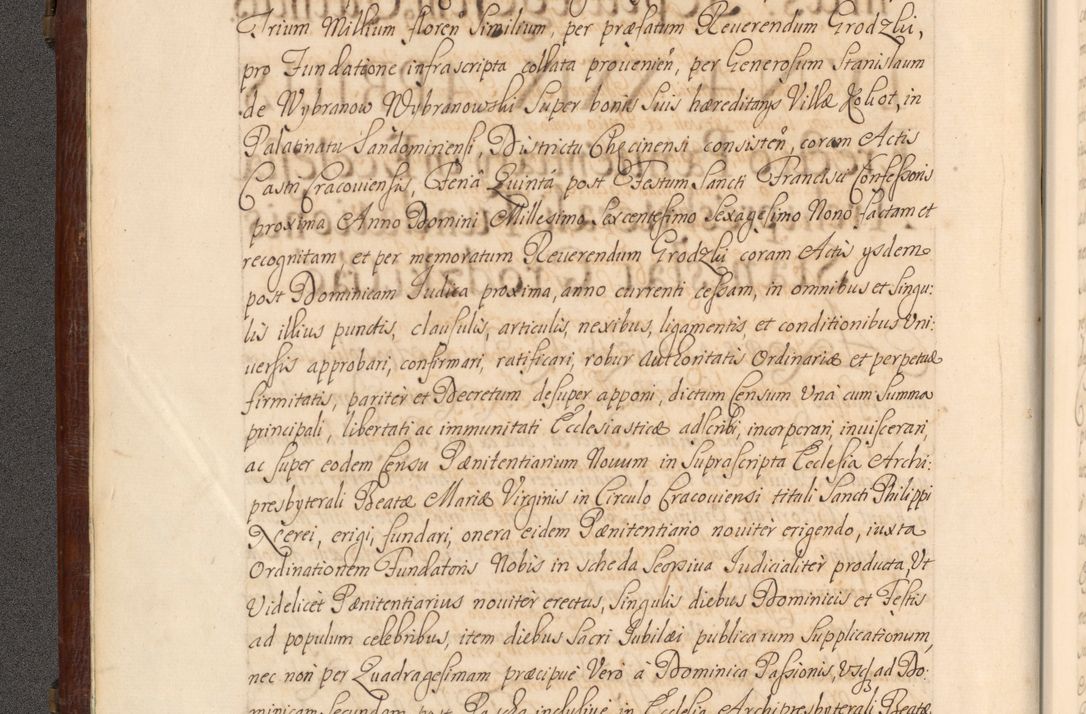 Trium Millium floren̄ Similium, per præfatum Reuerendum Grodzki,
pro Fundatione infrascripta collata prouenien̄, per Generosum Stanislaum
de Wybranow Wybranowski Super bonis suis hæreditarijs Villæ Koliot, in
Palatinatu Sandominensi, Districtu Checinensi consisten̄, coram Actis
Castri Cracouiensis, Feria Quinta post Festum Sancti Francisci Confessoris
proxima Anno Domini Millesimo Sexcentesimo Sexagesimo Nono factam et
recognitam et per memoratum Reuerendum Grodzki coram Actis ysdem
post Dominicam Iudica proxima, anno currenti cessam, in omnibus et singu:
lis illius punctis, clausulis, articulis, nexibus, ligamentis et conditionibus Vni:
uersis approbari, confirmari, ratificari, robur Authoritatis Ordinariæ et perpetuæ
firmitatis, pariter et Decretum desuper apponi, dictum Censum Vna cum Summa
principali, libertati ac immunitati Ecclesiasticæ adscribi, incorporari, inuiscerari,
ac super eodem Censu Pænitentiarium Nouum in Suprascripta Ecclesia Archi:
presbyterali Beatæ Mariæ Virginis in Circulo Cracouiensi tituli Sancti Philippi
Nerei, erigi, fundari, onera eidem Pænitentiario nouitèr erigendo, iuxta
Ordinationem Fundatoris Nobis in scheda seorsiua Iudicialitèr producta, Vt
Videlicèt Pænitentiarius nouitèr erectus, Singulis diebus Dominicis et Festis
ad populum celebribus, item diebus Sacri Iubilæi publicarum Supplicationum,
nec non per Quadragesimam præcipuè Verò à Dominica Passionis, Vsq3 ad Do:
minicam Secundam post Pascha inclusiuè in Ecclesia Archipresbyterali Beatæ